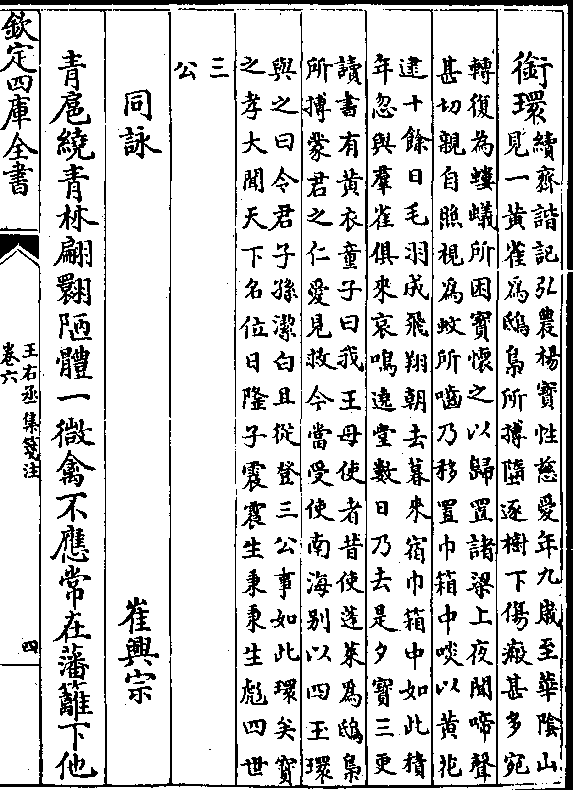 銜環
續齊諧記弘農楊寳性慈愛年九歲至華隂山
見一黃雀為鴟梟所搏墮逐樹下傷瘢甚多宛
轉復為螻蟻所困寳懷之以歸置諸梁上夜聞啼聲
甚切親自照視為蚊所嚙乃移置巾箱中啖以黃花
逮十餘日毛羽成飛翔朝去暮來宿巾箱中如此積
年忽與羣雀俱來哀鳴遶堂數日乃去是夕寳三更
讀書有黃衣童子曰我王母使者昔使蓬萊為鴟梟
所搏蒙君之仁愛見救今當受使南海别以四王環
與之曰令君子孫潔白且從登三公事如此環矣寳
之孝大聞天下名位日隆子震震生秉秉生彪四世
三
公
同詠 崔興宗
青扈繞青林翩翾陋體一微禽不應常在藩籬下他
欽定四庫全書
王右丞集箋注
卷六
四